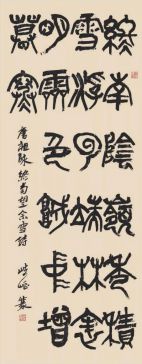 終南陰嶺秀積
雪浮云端林表
明霽色城中增
暮寒
唐祖詠終南望余雪詩 篆